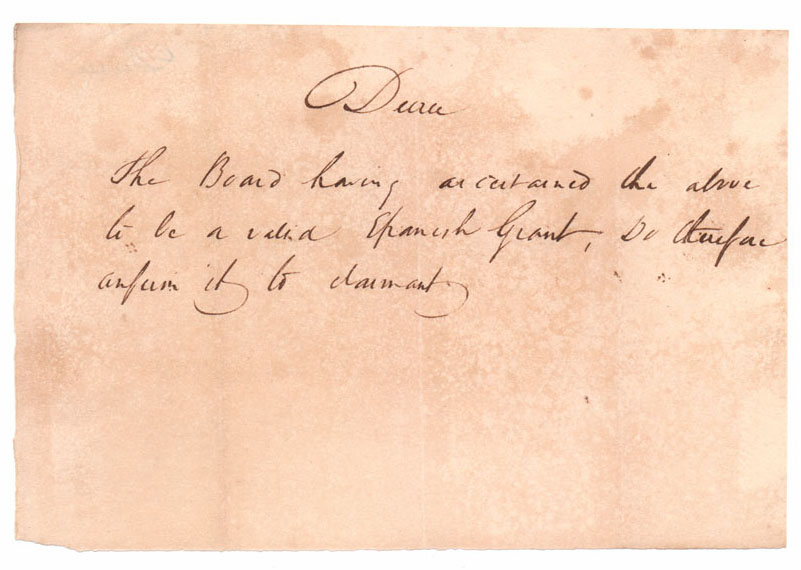 Decree
The Board having ascertained the above
to be a valid Spanish Grant, Do therefore
confirm it to claimant